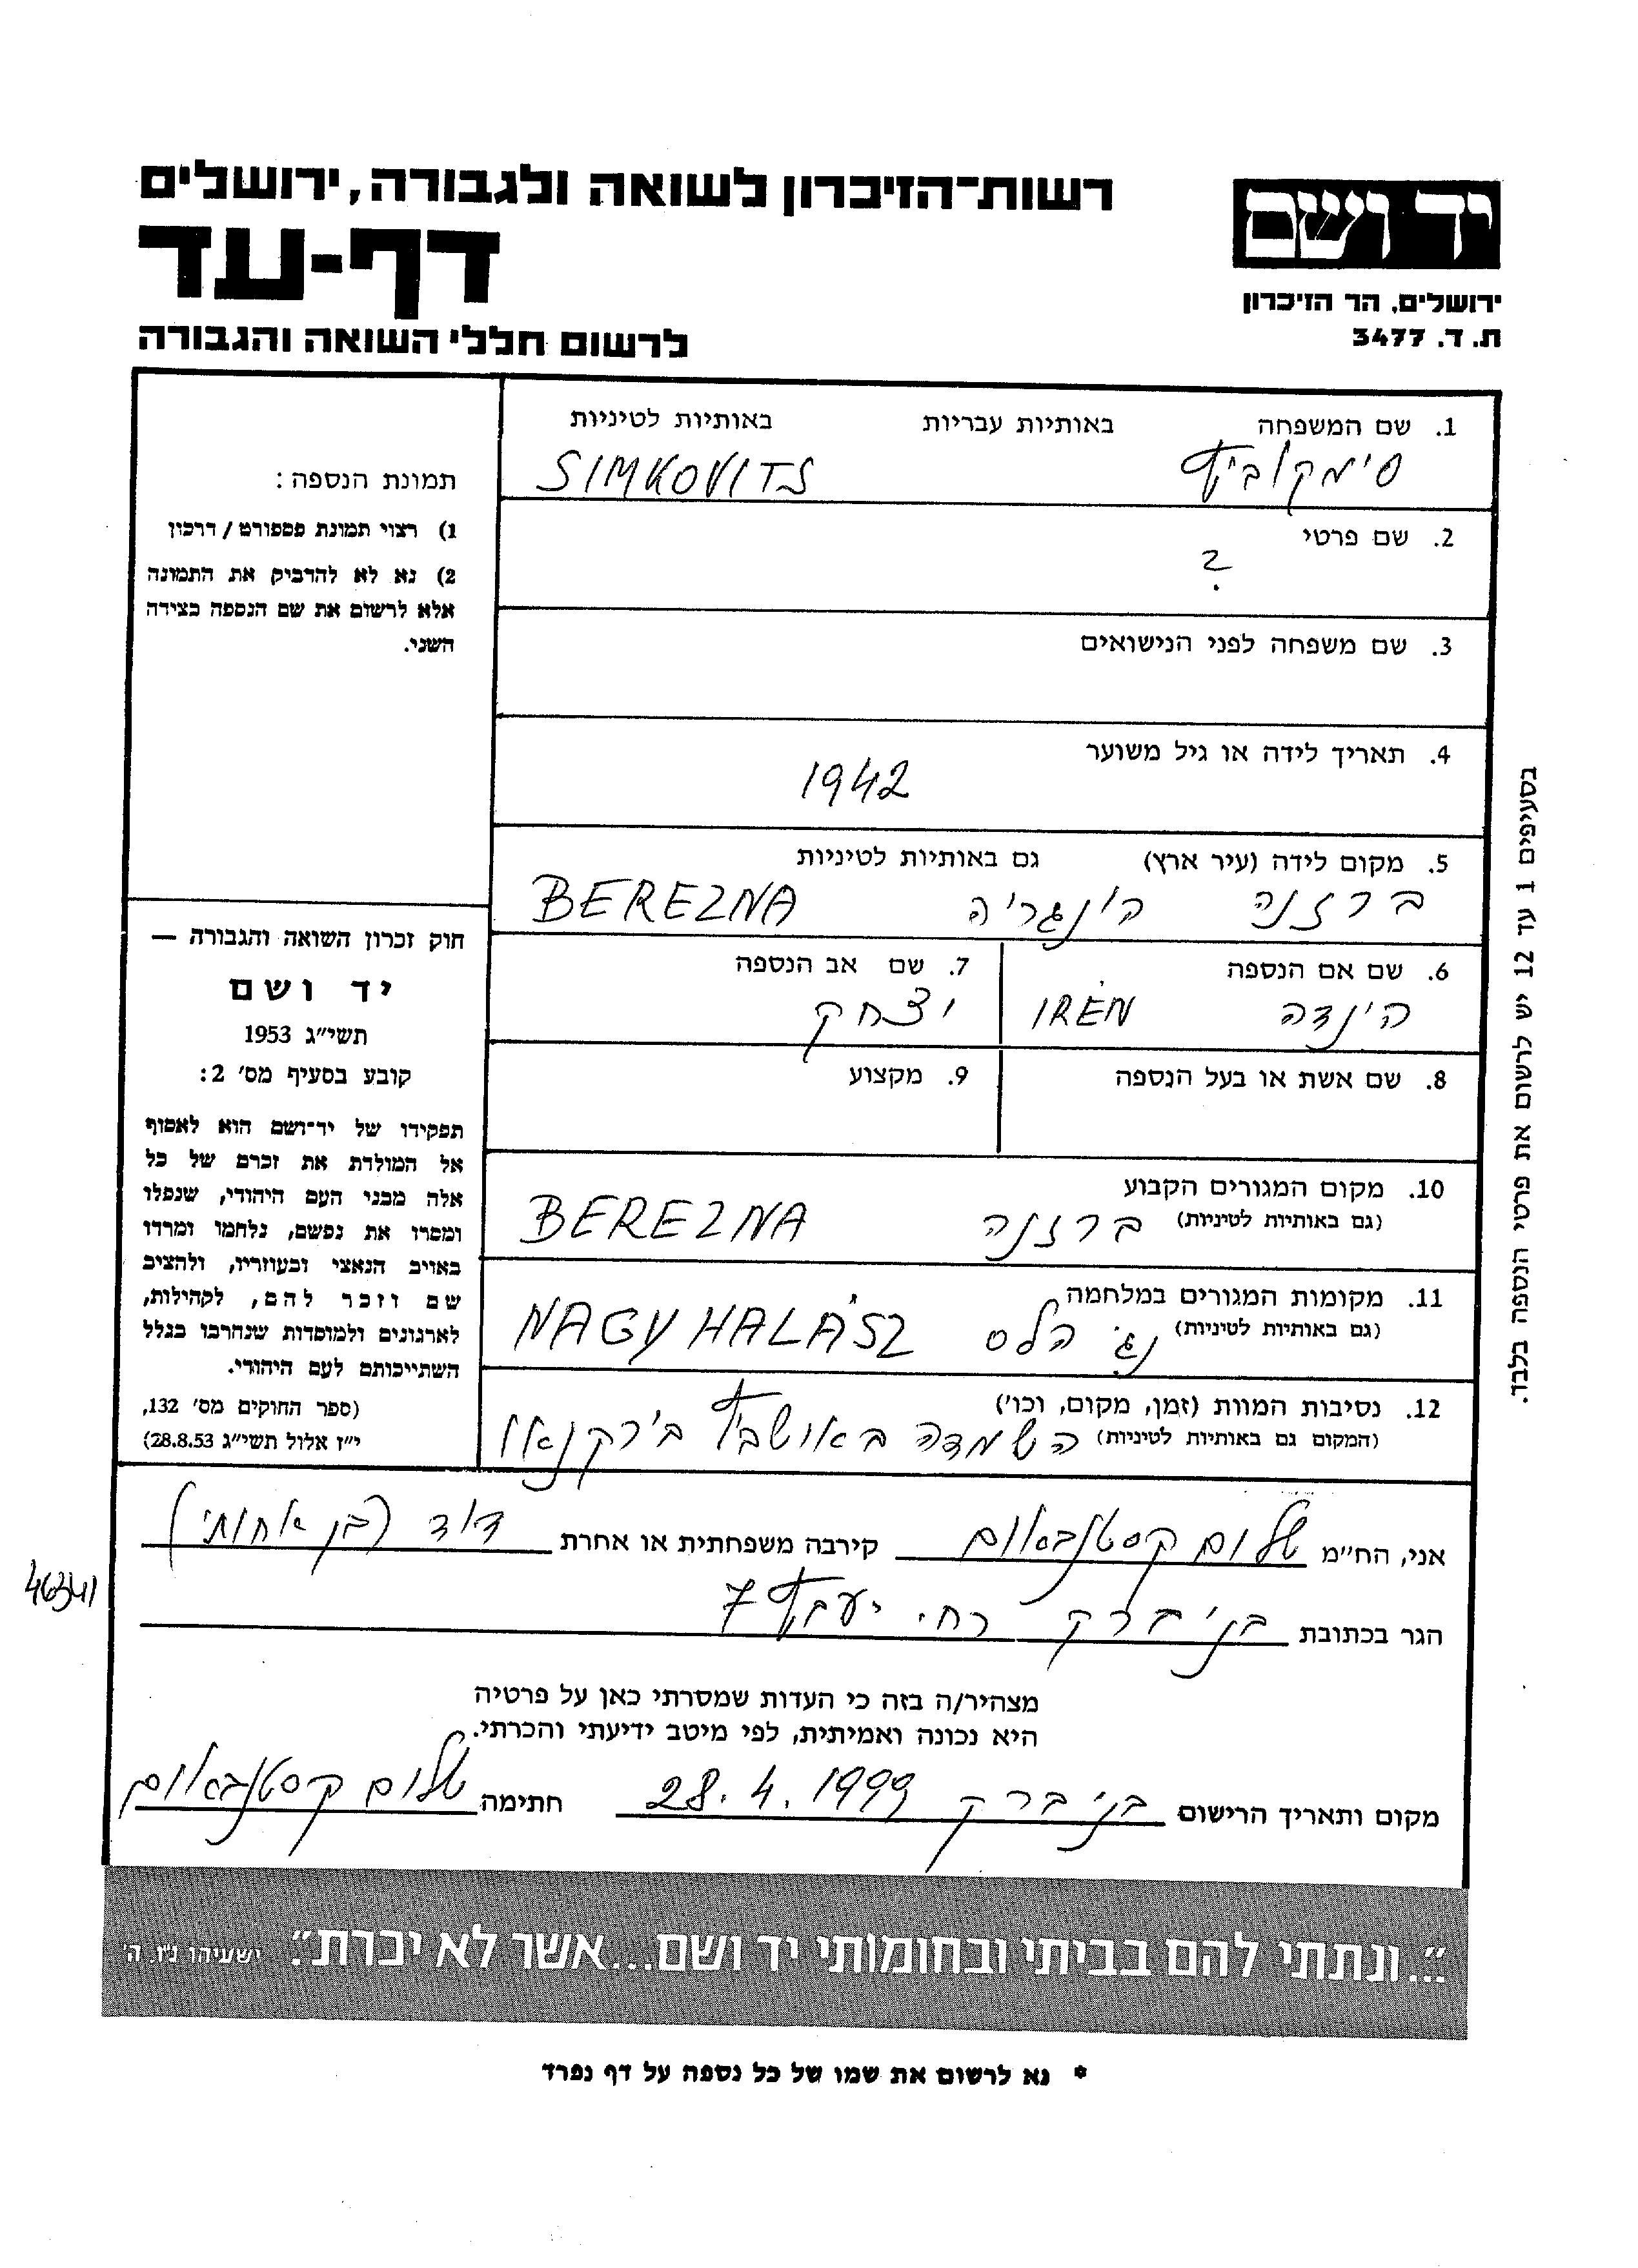 רשות־הזיכרון לשואה ולגבורה, ירושלים
דף-עד
לרשום חללי השואה והגבורה
יד ושם
ירושלים, הר הזיכרון
ת. ד. 3477
1. שם המשפחה באותיות עבריות באותיות לטיניות
סימקוביץ SIMKOVITS
2. שם פרטי
?
3. שם משפחה לפני הנישואים
4. תאריך לידה או גיל משוער
1942
5. מקום לידה (עיר ארץ) גם באותיות לטיניות
ברזנה הונגריה BEREZNA
6. שם אם הנספה
הינדה IRÉN
7. שם אב הנספה
יצחק
8. שם אשת או בעל הנספה
9. מקצוע
10. מקום המגורים הקבוע
(גם באותיות לטיניות) ברזנה BEREZNA
11. מקומות המגורים במלחמה
(גם באותיות לטיניות) נג' הלס NAGYHALÁSZ
12. נסיבות המוות (זמן, מקום, וכו')
(המקום גם באותיות לטיניות) השמדה באושביץ בירקנאו
תמונת הנספה:
1) רצוי תמונת פספורט / דרכון
2) נא לא להדביק את התמונה
אלא לרשום את שם הנספה בצידה
השני.
חוק זכרון השואה והגבורה —
יד ושם
תשי״ג 1953
קובע בסעיף מס׳ 2:
תפקידו של יד־ושם הוא לאסוף
אל המולדת את זכרם של כל
אלה מבני העם היהודי, שנפלו
ומסרו את נפשם, נלחמו ומרדו
באויב הנאצי ובעוזריו, ולהציב
שם וזכר להם, לקהילות,
לארגונים ולמוסדות שנחרבו בגלל
השתייכותם לעם היהודי.
(ספר החוקים מס׳ 132,
י״ז אלול תשי״ג 28.8.53)
בסעיפים 1 עד 12 יש לרשום את פרטי הנספה בלבד.
אני, הח״מ שלום קסטנבאום קירבה משפחתית או אחרת דוד (בן אחותי)
הגר בכתובת בני ברק רח. יעבץ 7
מצהיר/ה בזה כי העדות שמסרתי כאן על פרטיה
היא נכונה ואמיתית, לפי מיטב ידיעתי והכרתי.
מקום ותאריך הרישום בני ברק 28.4.1999 חתימה שלום קסטנבאום
״...ונתתי להם בביתי ובחומותי יד ושם...אשר לא יכרת״. ישעיהו נ״ו, ה׳
* נא לרשום את שמו של כל נספה על דף נפרד